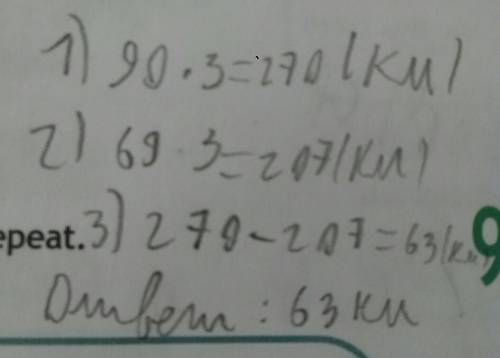 1) 90 · 3 = 270 (км)
2) 69 · 3 = 207 (км)
epeat. 3) 270 - 207 = 63 (км) 9
Ответ : 63 км